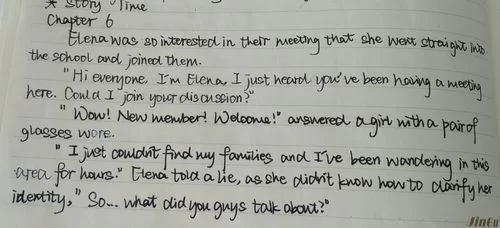 * Story Time
Chapter 6
Elena was so interested in their meeting that she went straight into
the school and joined them.
"Hi everyone, I'm Elena, I just heard you've been having a meeting
here. Could I join your discussion?"
"Wow! New member! Welcome!" answered a girl with a pair of
glasses wore.
"I just couldn't find my families and I've been wandering in this
area for hours." Elena told a lie, as she didn't know how to clarify her
identity, "So... what did you guys talk about?"
JinGu